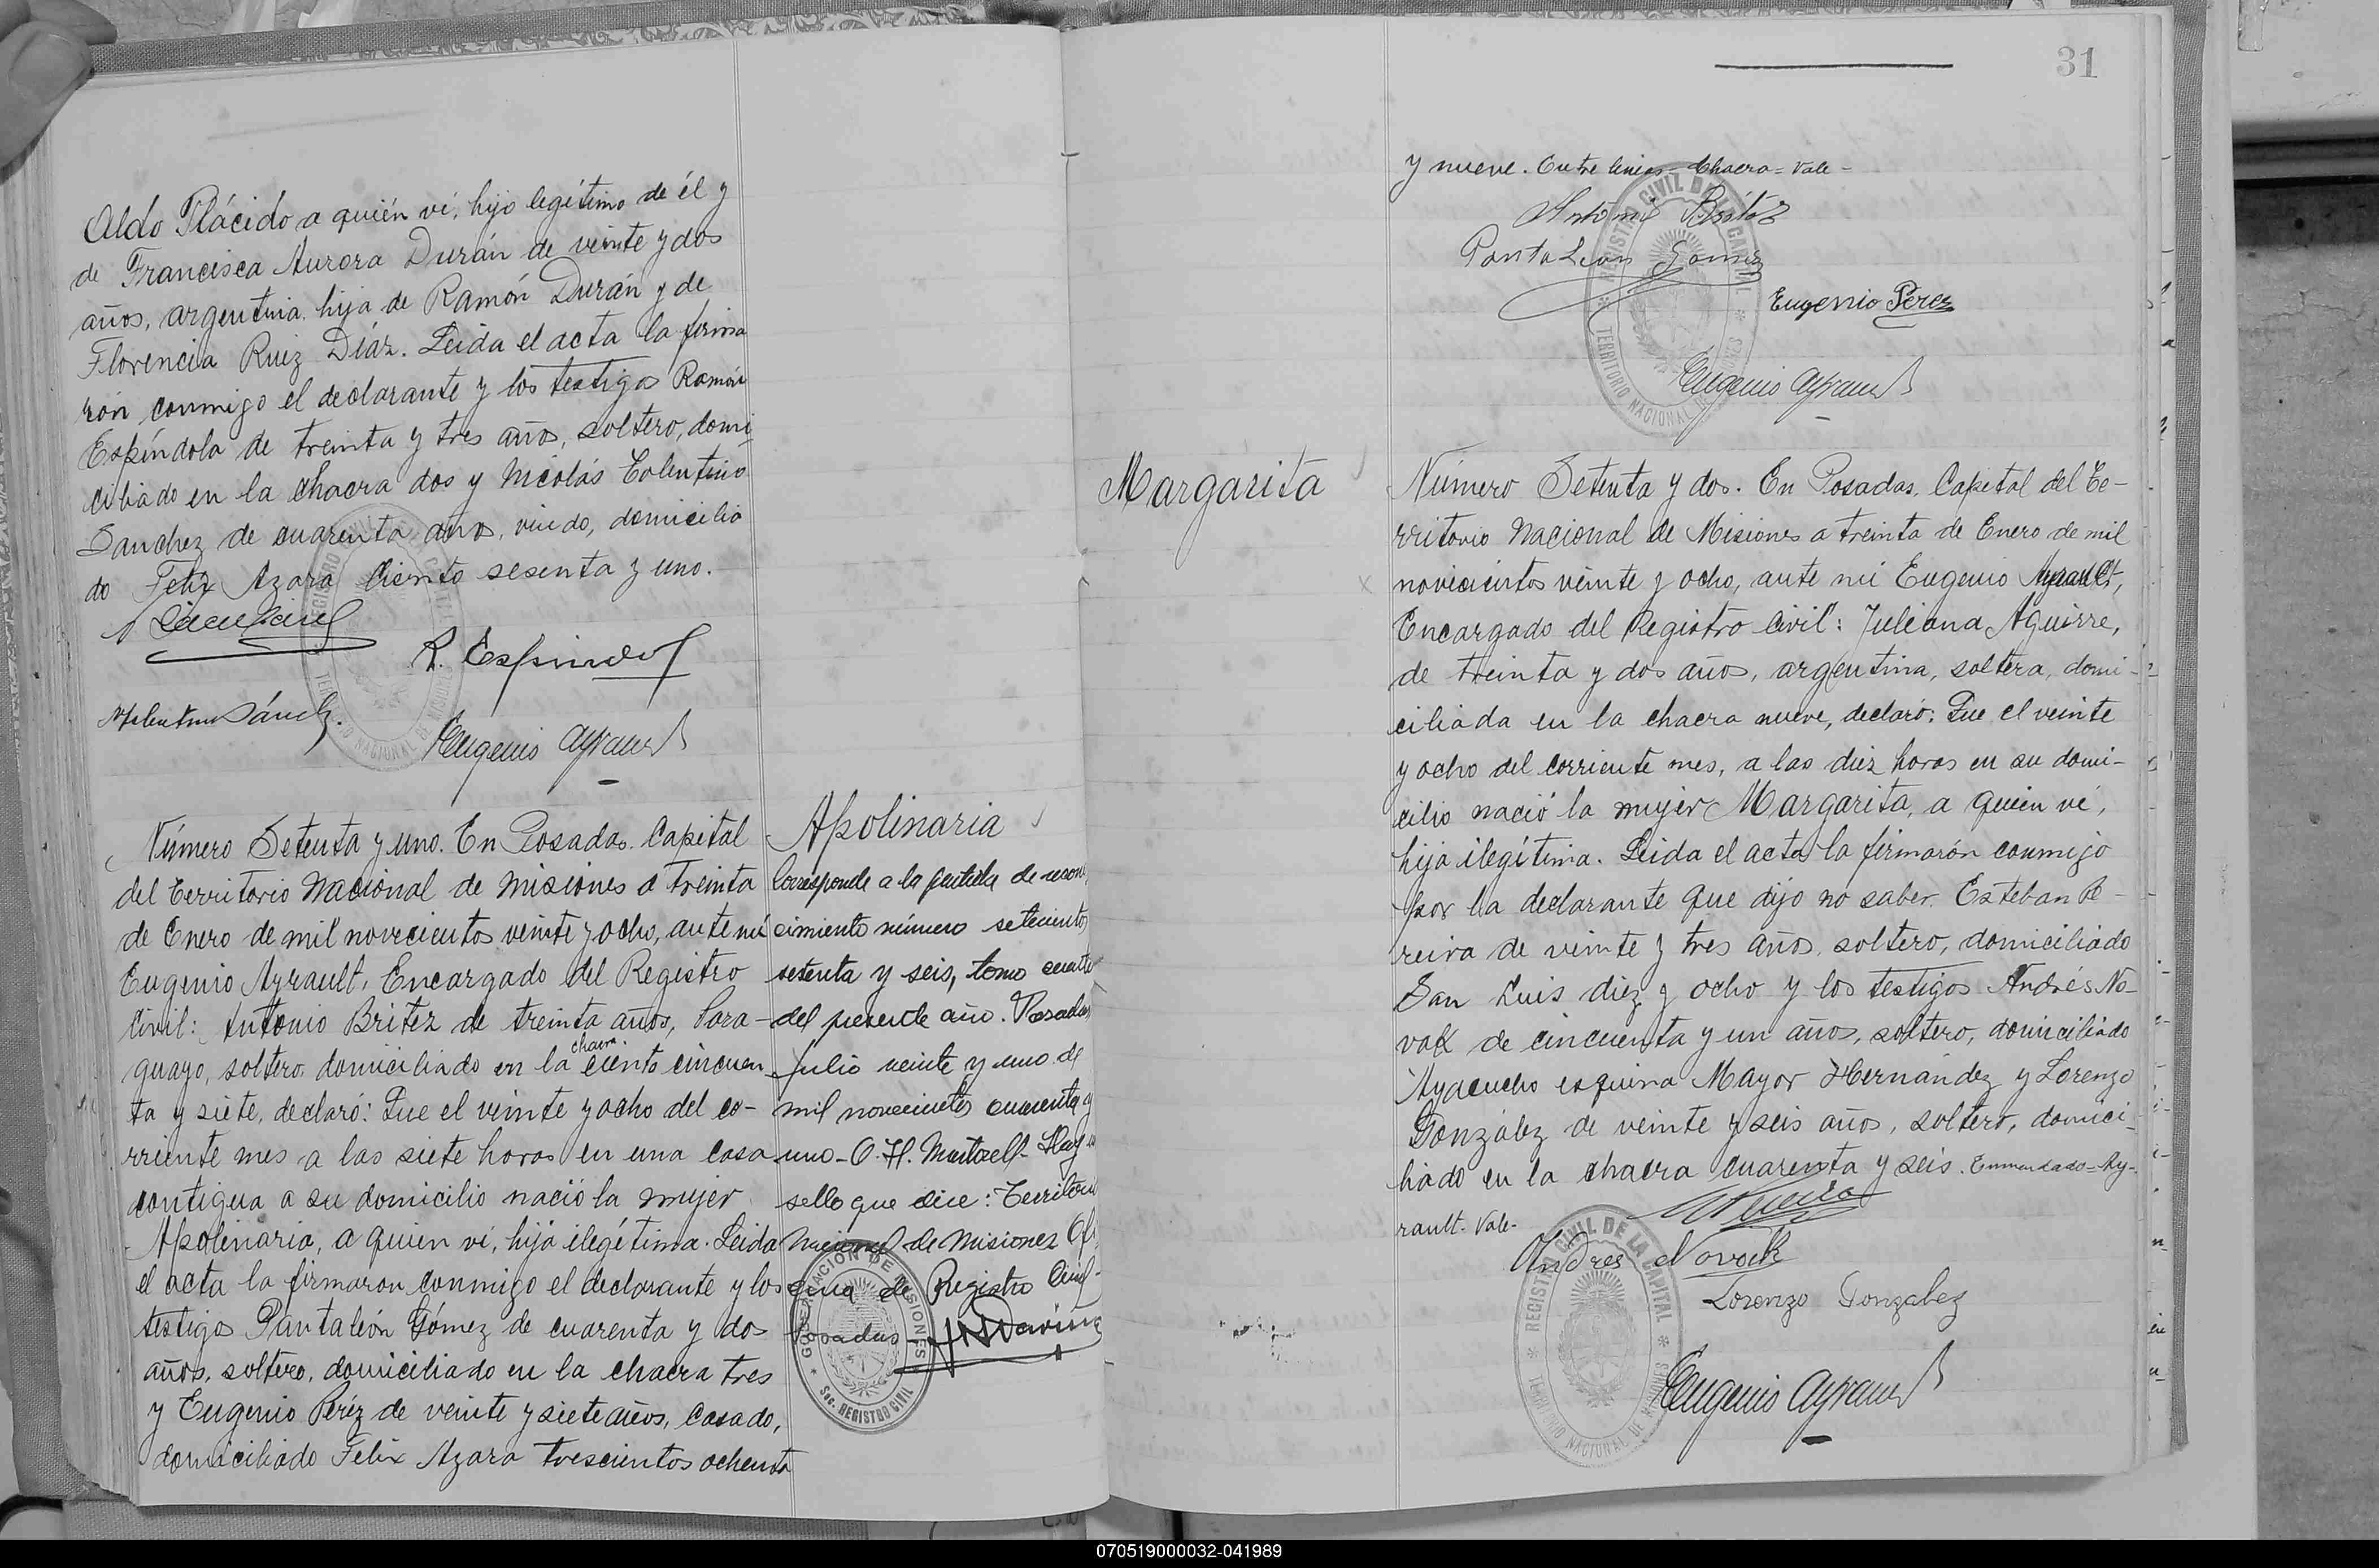 Aldo Plácido a quién ví, hijo legítimo de él y
de Francisca Aurora Durán de veinte y dos
años, argentina, hija de Ramón Durán y de
Florencia Ruiz Díaz. Leida el acta la firma
rón conmigo el declarante y los testigos Ramón
Espíndola de treinta y tres años, soltero, domi
ciliado en la chacra dos y Nicolás Tolentino
Sanchez de cuarenta años, viudo, domicilia
do Felix Azara Ciento sesenta y uno.
R. Espindol
Eugenio Ayrault
Número Setenta y uno. En Posadas. Capital
del Territorio Nacional de Misiones a treinta
de Enero de mil novecientos veinte y ocho, ante mí
Eugenio Ayrault, Encargado del Registro
Civil: Antonio Britez de treinta años, Para-
guayo, soltero, domiciliado en la chacra ciento cincuen
ta y siete, declaró: Que el veinte y ocho del co-
rriente mes a las siete horas en una casa
contigua a su domicilio nació la mujer
Apolinaria, a quien ví, hija ilegítima. Leida
el acta la firmaron conmigo el declarante y los
testigos Pantaleón Gómez de cuarenta y dos
años, soltero, domiciliado en la chacra tres
y Eugenio Peréz de veinte y siete años, Casado,
domiciliado Felix Azara trescientos ochenta
Apolinaria
Corresponde a la partida de recono
cimiento número setecientos
setenta y seis, tomo cuatro
del presente año. Posadas
Julio veinte y uno de
mil novecientos cuarenta y
uno- O. H. Hay un
sello que dice: Territorio
Nacional de Misiones Ofi
cina de Registro Civil-
Posadas
GOBERNACIÓN DE MISIONES
Sec. REGISTRO CIVIL
31
y nueve. Entre lineas= Chacra= Vale-
Antonio Britez
Pantaleon Gomez
Eugenio Pérez
Eugenio Ayrault
REGISTRO CIVIL DE LA CAPITAL
TERRITORIO NACIONAL DE MISIONES
Margarita
Número Setenta y dos. En Posadas, Capital del Te-
rritorio Nacional de Misiones a treinta de Enero de mil
novecientos veinte y ocho, ante mi Eugenio Ayrault,
Encargado del Registro Civil: Juliana Aguirre,
de treinta y dos años, argentina, soltera, domi-
ciliada en la chacra nueve, declaró: Que el veinte
y ocho del corriente mes, a las diez horas en su domi-
cilio nació la mujer Margarita, a quien ví,
hija ilegítima. Leida el acta la firmarón conmigo
por la declarante que dijo no saber. Esteban Pe-
reira de veinte y tres años, soltero, domiciliado
San Luis diez y ocho y los testigos Andrés No-
vak de cincuenta y un años, soltero, domiciliado
Ayacucho esquina Mayor Hernández y Lorenzo
González de veinte y seis años, soltero, domici-
liado en la chacra cuarenta y seis. Enmendado=Ay-
rault- Vale-
Andres Novack
Lorenzo Gonzalez
Eugenio Ayrault
REGISTRO CIVIL DE LA CAPITAL
TERRITORIO NACIONAL DE MISIONES
070519000032-041989